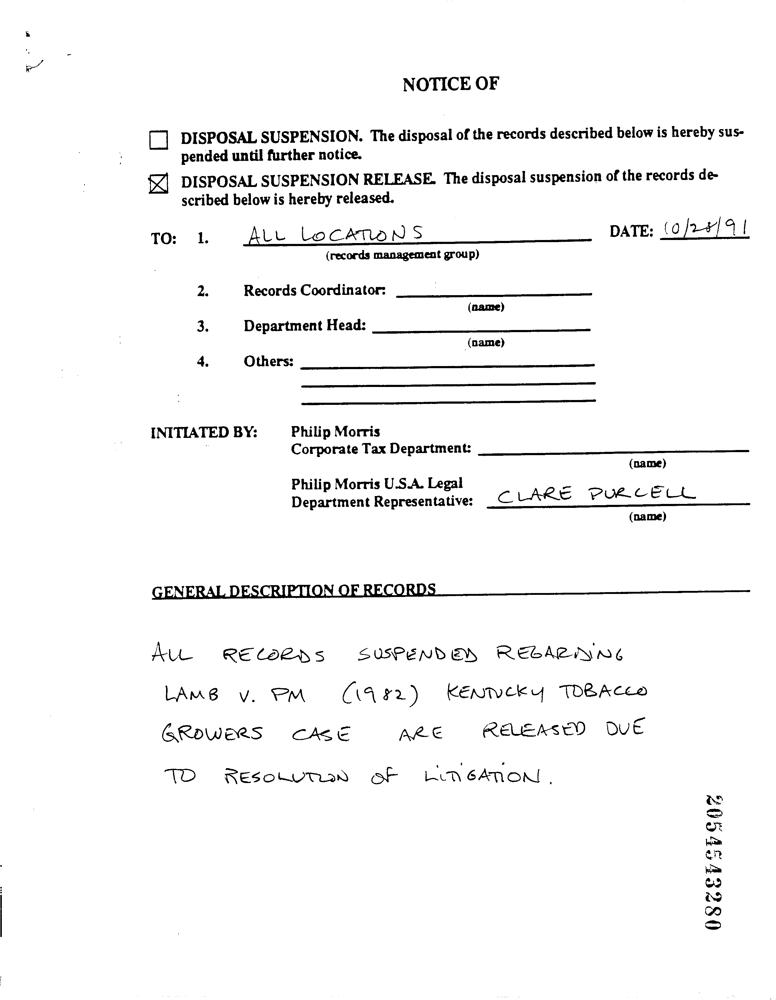 NOTICE OF
DISPOSAL SUSPENSION. The disposal of the records described below is hereby sus-
pended until further notice.
DISPOSAL SUSPENSION RELEASE. The disposal suspension of the records de-
scribed below is hereby released.
TO: 1. ALL LOCATIONS DATE: 10/28/91
(records management group)
2. Records Coordinator:
(name)
3. Department Head:
(name)
4. Others:
INITIATED BY: Philip Morris
Corporate Tax Department:
(name)
Philip Morris U.S.A. Legal
Department Representative: CLARE PURCELL
(name)
GENERAL DESCRIPTION OF RECORDS
ALL RECORDS SUSPENDED REGARDING
LAMB V. PM (1982) KENTUCKY TOBACCO
GROWERS CASE ARE RELEASED DUE
TO RESOLUTION OF LITIGATION.
2054543280